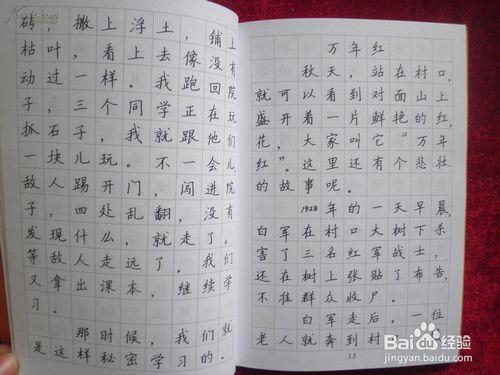 砖，撒上浮土，铺上
枯叶，看上去像没有
动过一样。我跑回院
子，三个同学正在玩
抓石子，我就跟他们
一块儿玩。不一会儿，
敌人踢开门，闯进院
子，四处乱翻，没有
发现什么，就走了。
等敌人走远了，我们
又拿出课本，继续学
习。
那时候，我们就
是这样秘密学习的。
万年红
秋天，站在村口，
就可以看到对面山上
盛开着一片鲜艳的红
花，大家叫它“万年
红”。这里还有个悲壮
的故事呢。
1928年的一天早晨，
白军在村口大树下杀
害了三名红军战士，
还在树上张贴了布告，
不准群众收尸。
白军走后，一位
老人就奔到村
13
Baidu经验
jingyan.baidu.com